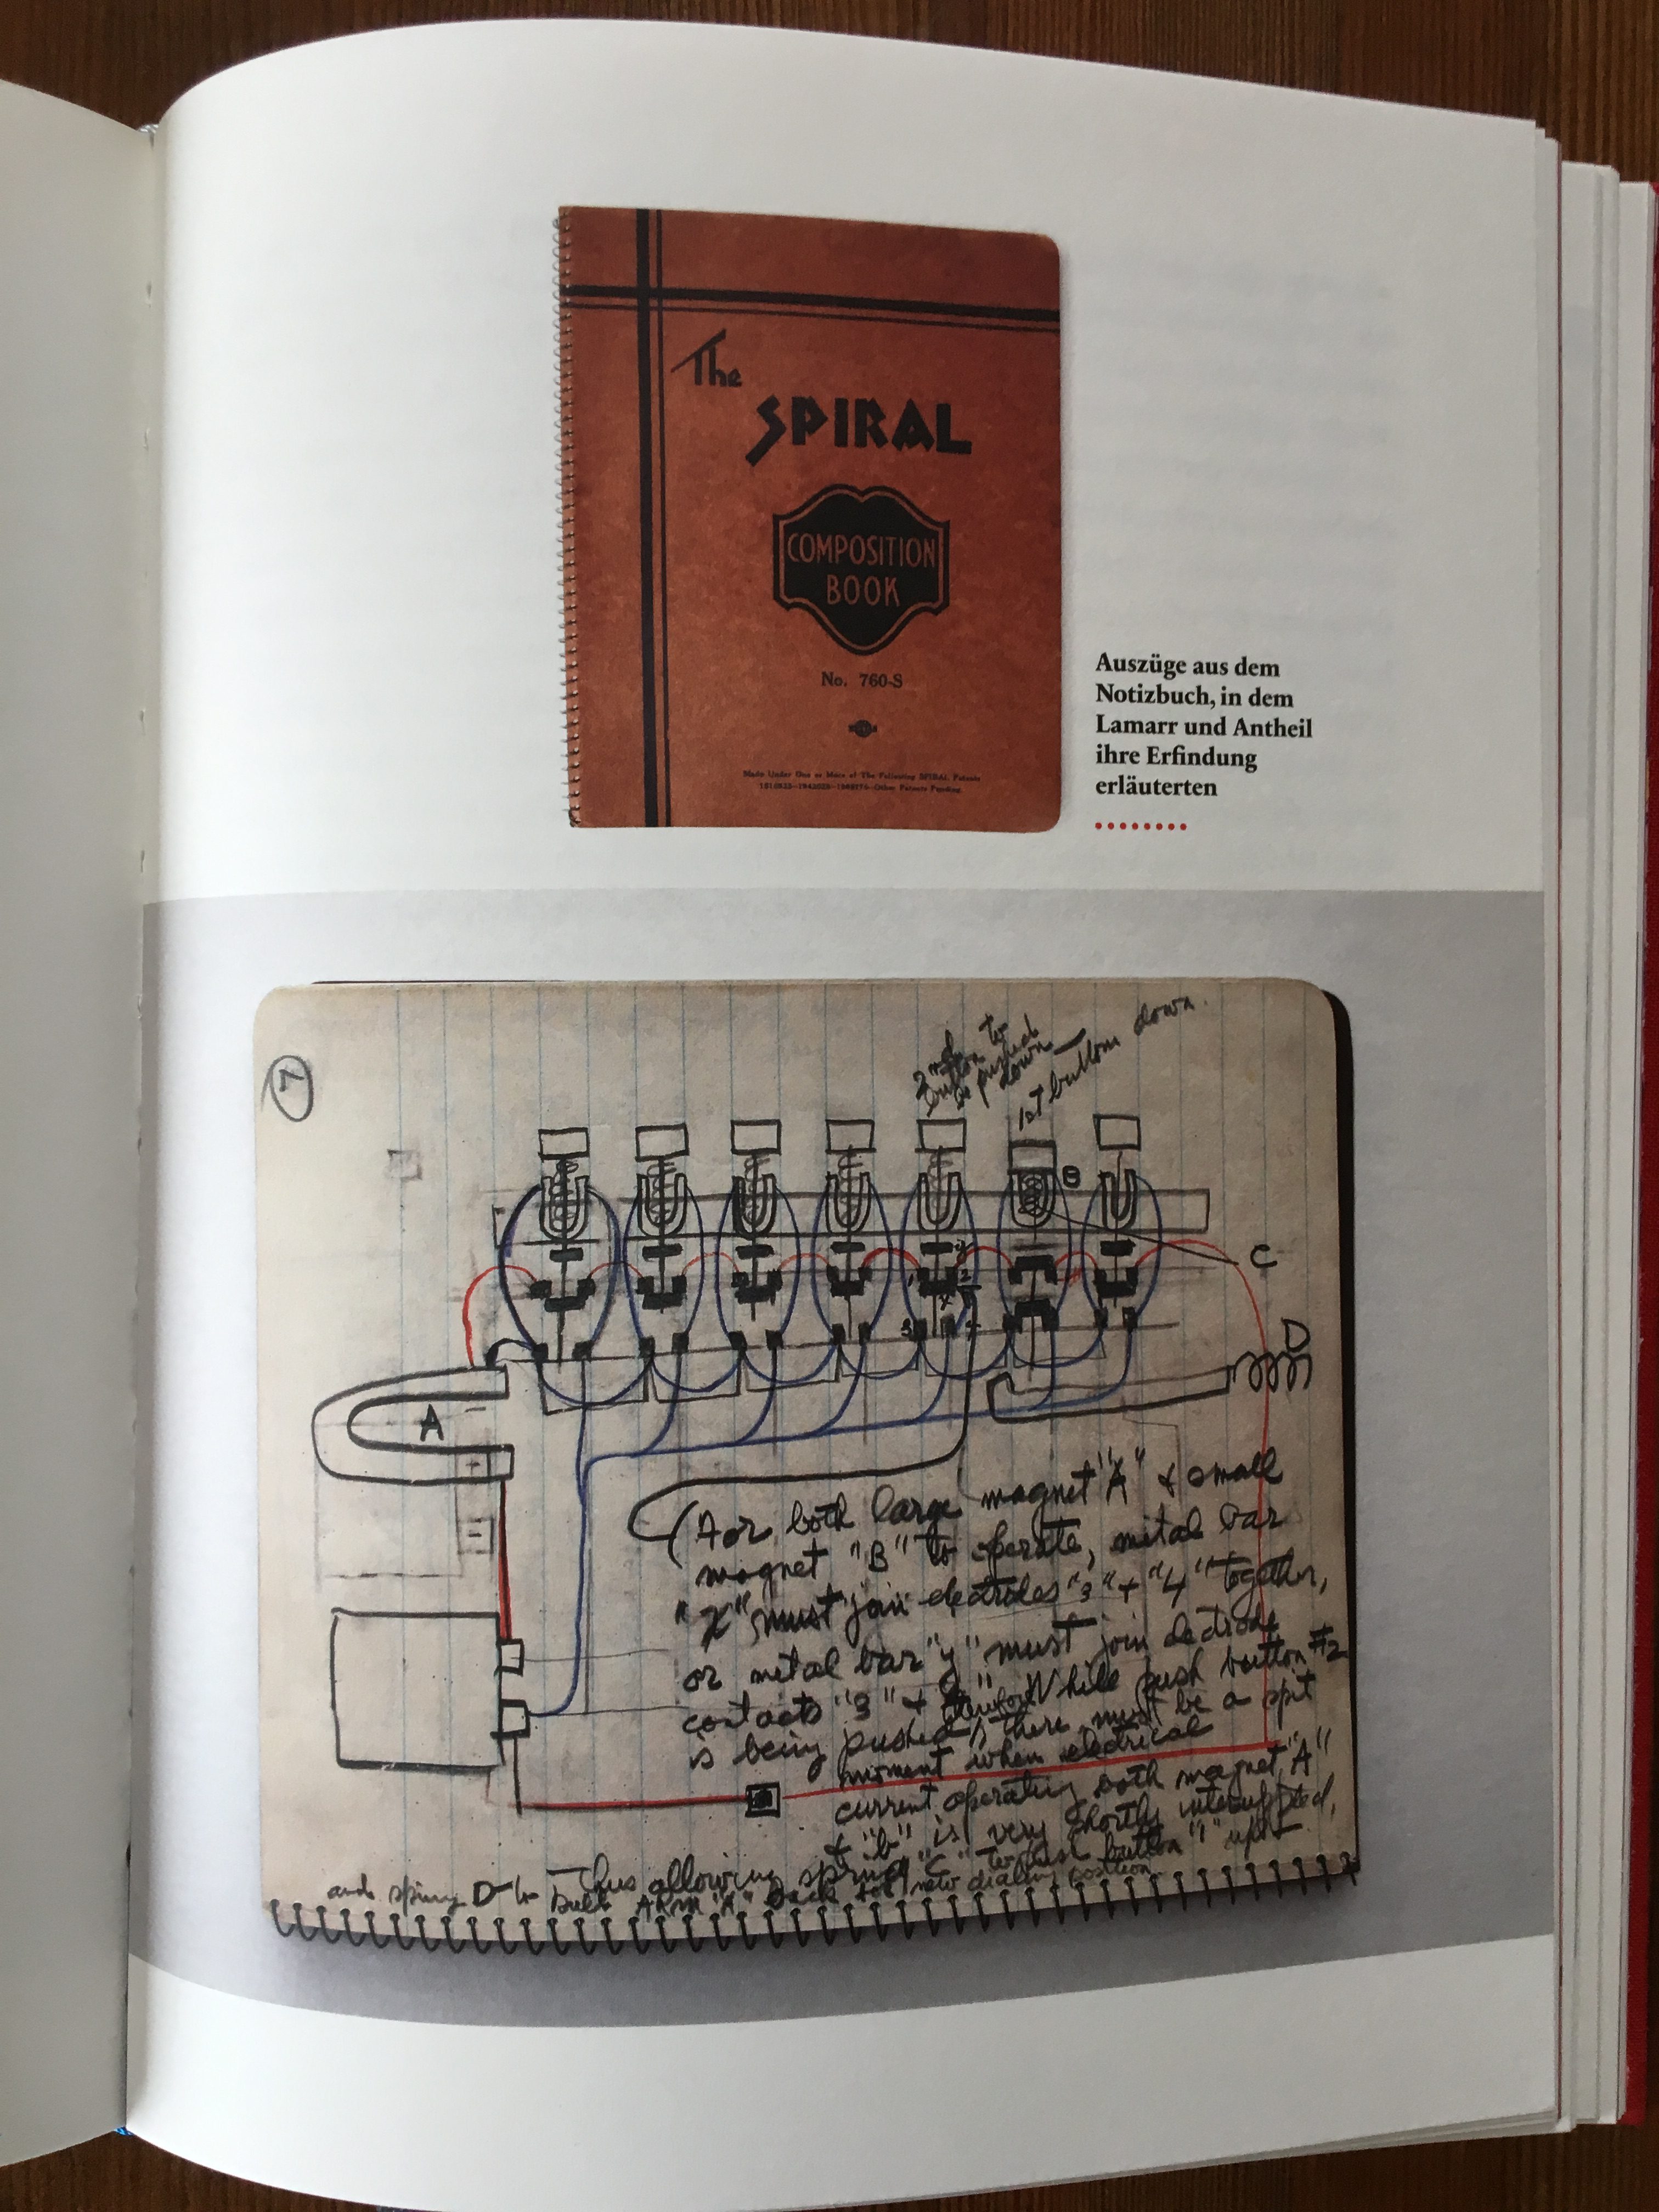 The
SPIRAL
COMPOSITION
BOOK
No. 760-S
Made Under One or More of The Following SPIRAL Patents
Other Patents Pending
Auszüge aus dem
Notizbuch, in dem
Lamarr und Antheil
ihre Erfindung
erläuterten
2nd
button to
be pushed
down
1st button down.
B
C
D
A
(For both large magnet "A" & small
magnet "B" to operate, metal bar
"X" must join electrodes "3" + "4" together,
or metal bar "y" must join electrode
contacts "3" +
While push button #2
is being pushed there must be a split
moment when electrical
current operating both magnet "A"
& "b" is very shortly interrupted,
Thus allowing spring "C" to push button "1" up
and spring D to pull ARM "A" back to new dialing position